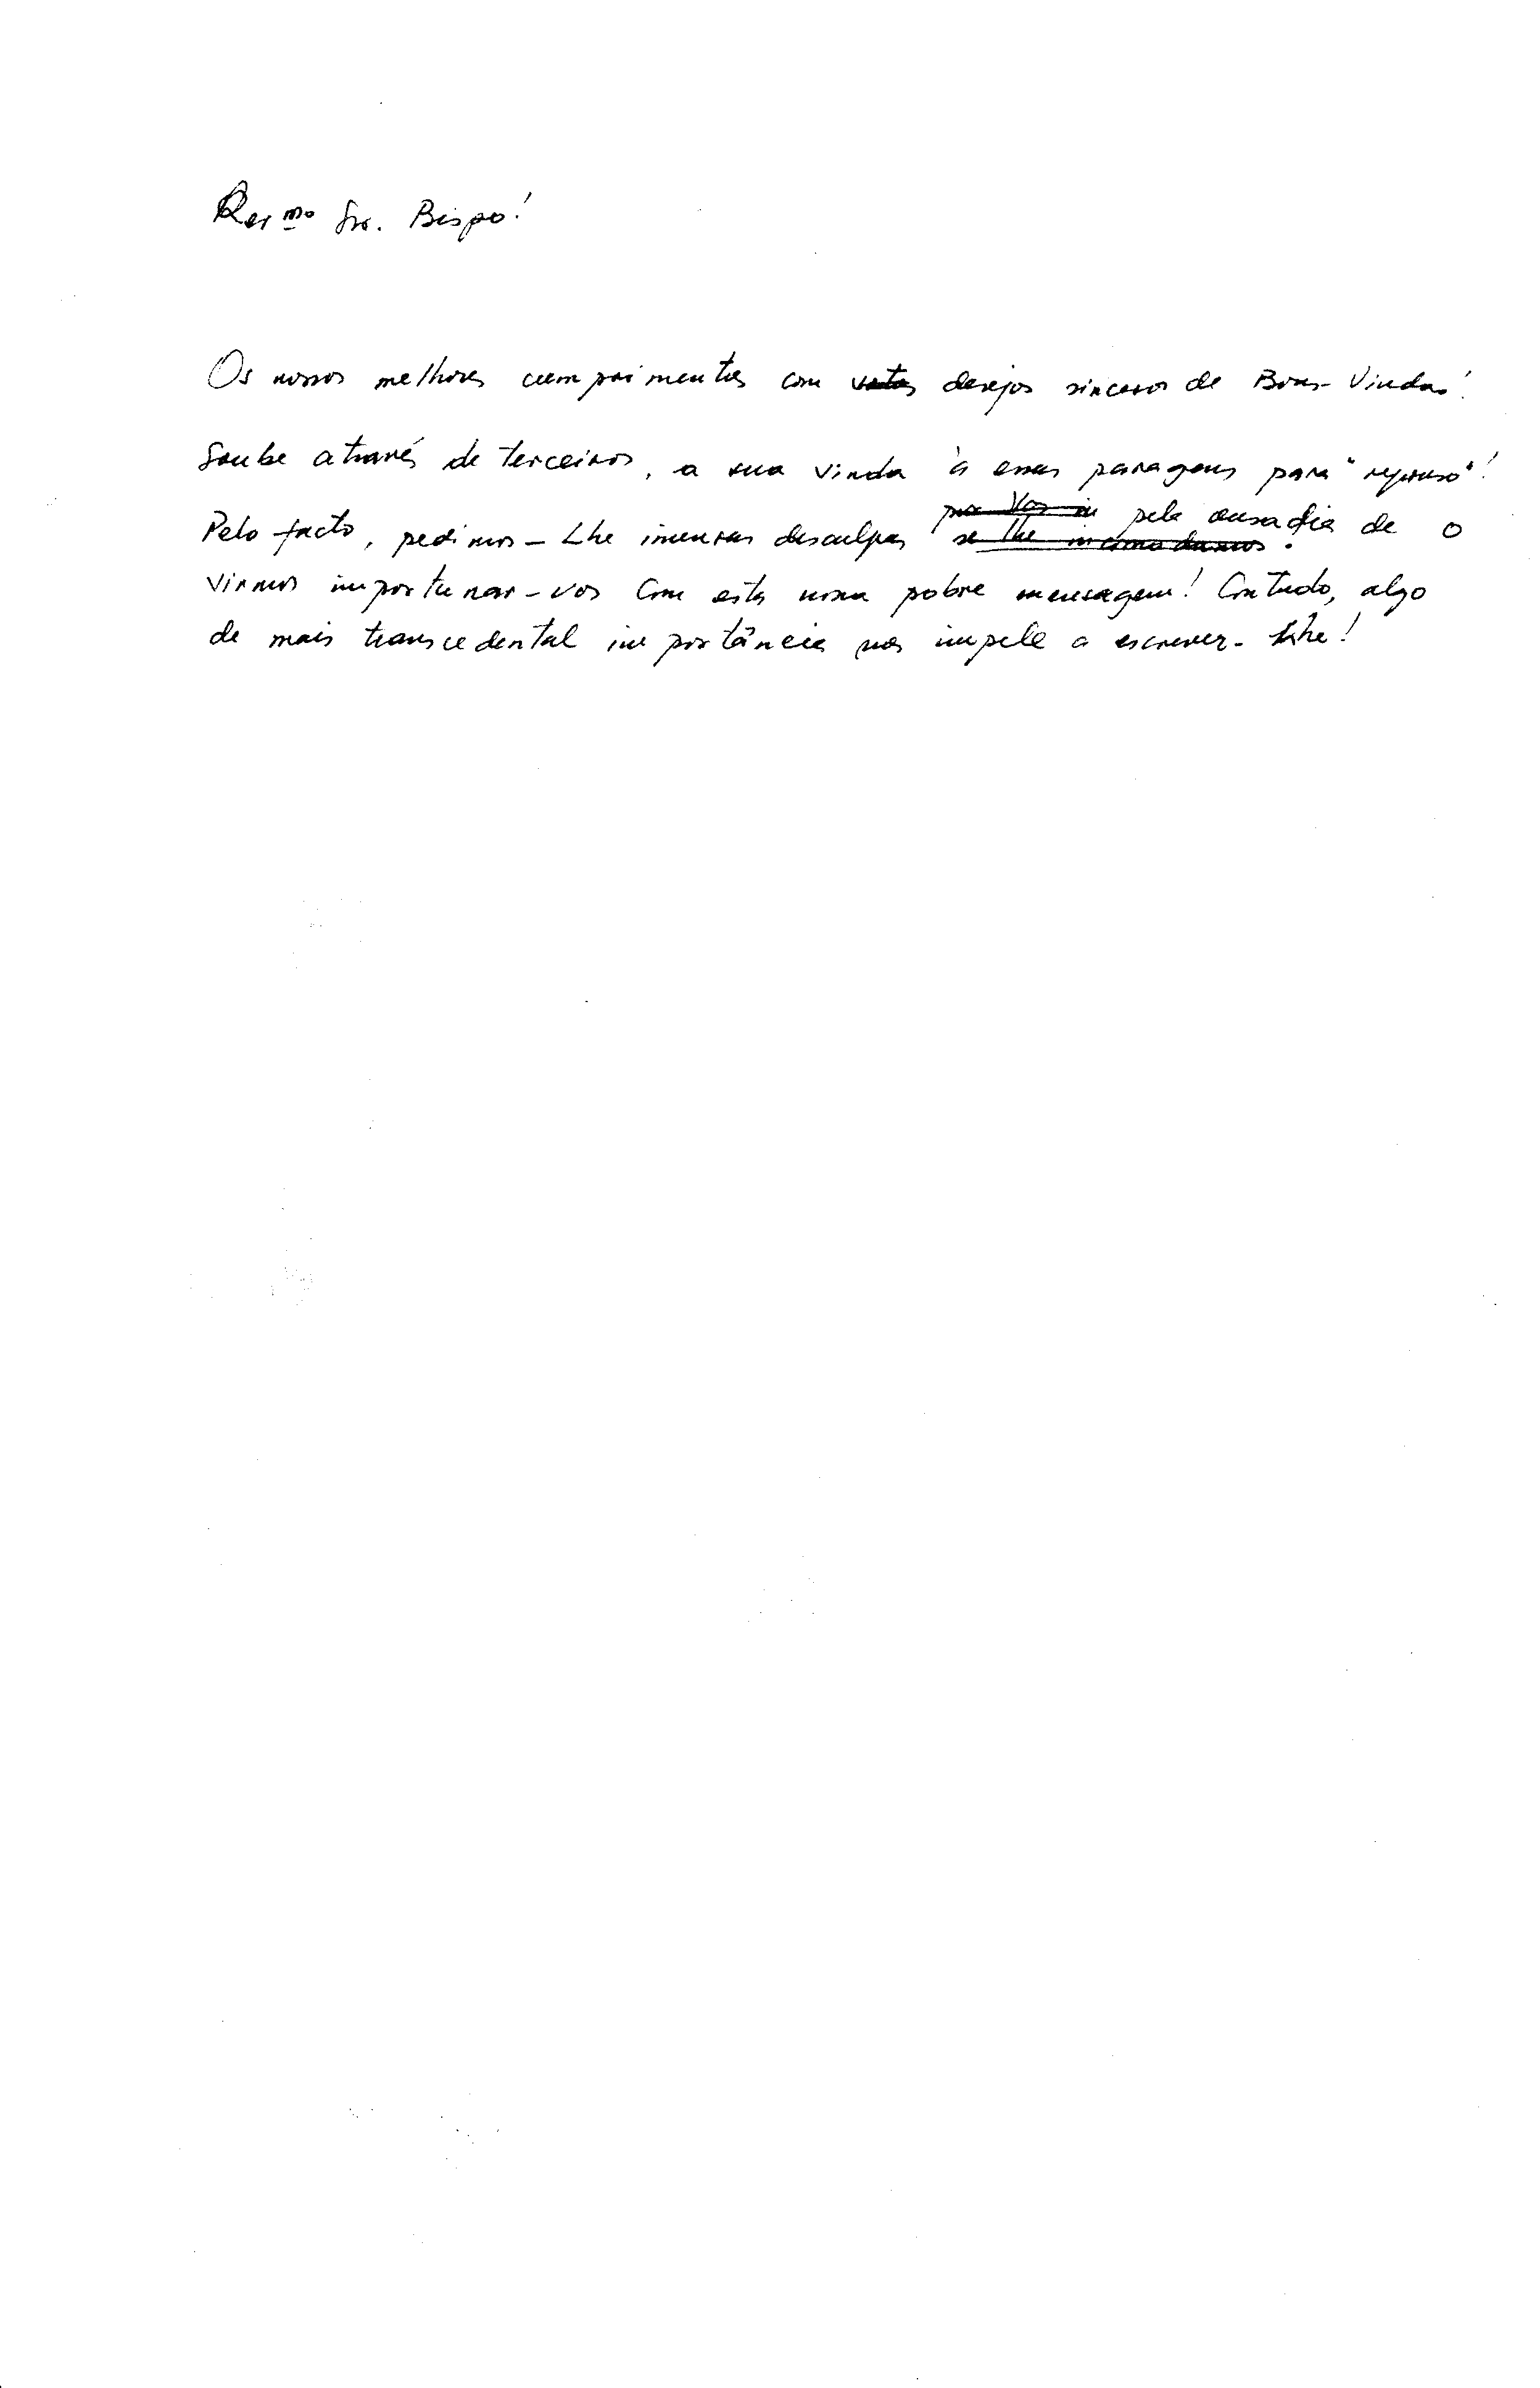 Revmo Snr. Bispo!
Os nossos melhores cumprimentos com votos desejos sinceros de Boas-Vindas!
Soube através de terceiros, a sua vinda à essas paragens para "repouso"!
por Vos in pela ousadia de o
Pelo facto, pedimos-Lhe imensas desculpas se lhe incomodamos.
virmos importunar-vos com esta nossa pobre mensagem! Contudo, algo
de mais transcedental importância nos impele a escrever-Lhe!